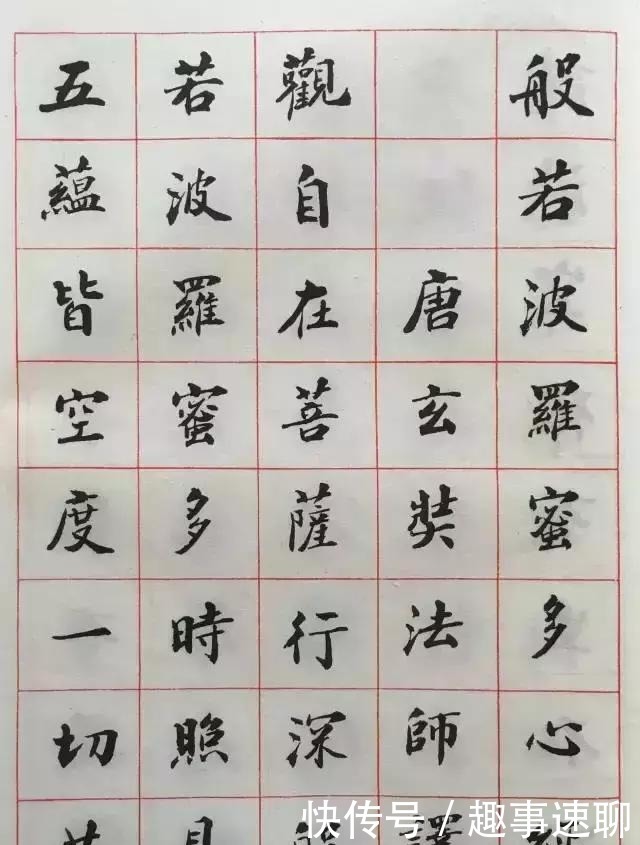 般若波羅蜜多心
唐玄奘法師譯
觀自在菩薩行深
若波羅蜜多時照
五蘊皆空度一切
快传号/趣事速聊